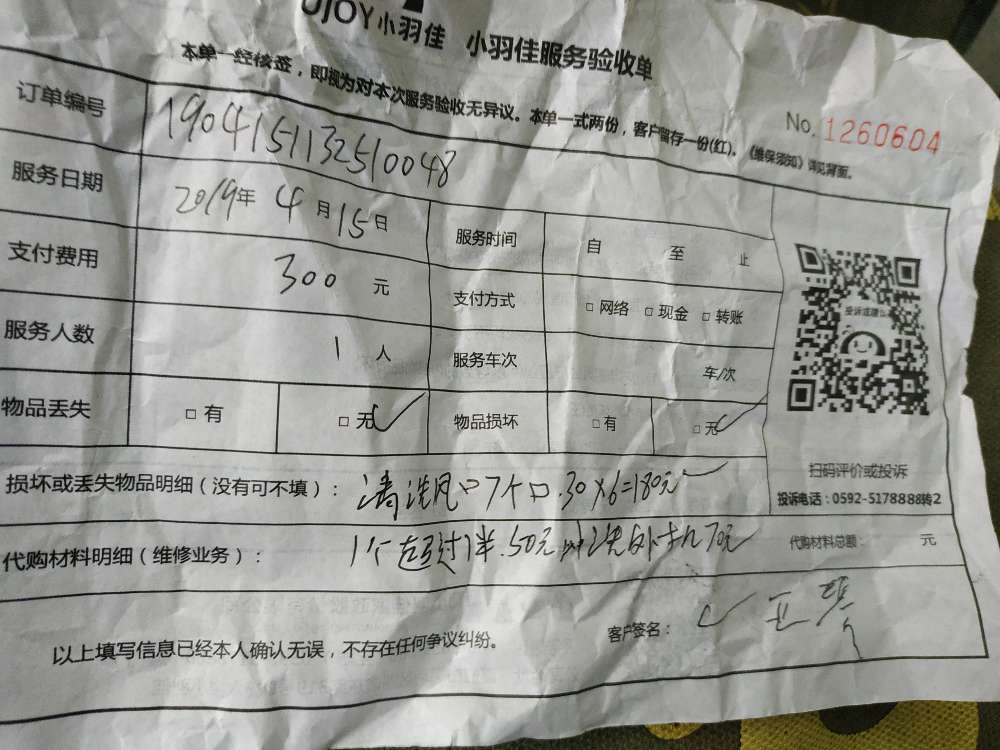 UJOY小羽佳 小羽佳服务验收单
本单一经核签，即视为对本次服务验收无异议。本单一式两份，客户留存一份(红)。《维保须知》详见背面。
No. 1260604
订单编号 1904151132510048
服务日期 2019年 4月15日 服务时间 自 至 止
支付费用 300 元 支付方式 □ 网络 □ 现金 □ 转账
服务人数 1 人 服务车次 车/次
物品丢失 □ 有 □ 无✓ 物品损坏 □ 有 □ 无✓
投诉或建议
扫码评价或投诉
投诉电话：0592-5178888转2
损坏或丢失物品明细（没有可不填）： 清洗风口7个口.30×6=180元
代购材料明细（维修业务）： 1个超过1半.50元 洗外机70元 代购材料总额： 元
以上填写信息已经本人确认无误，不存在任何争议纠纷。 客户签名：